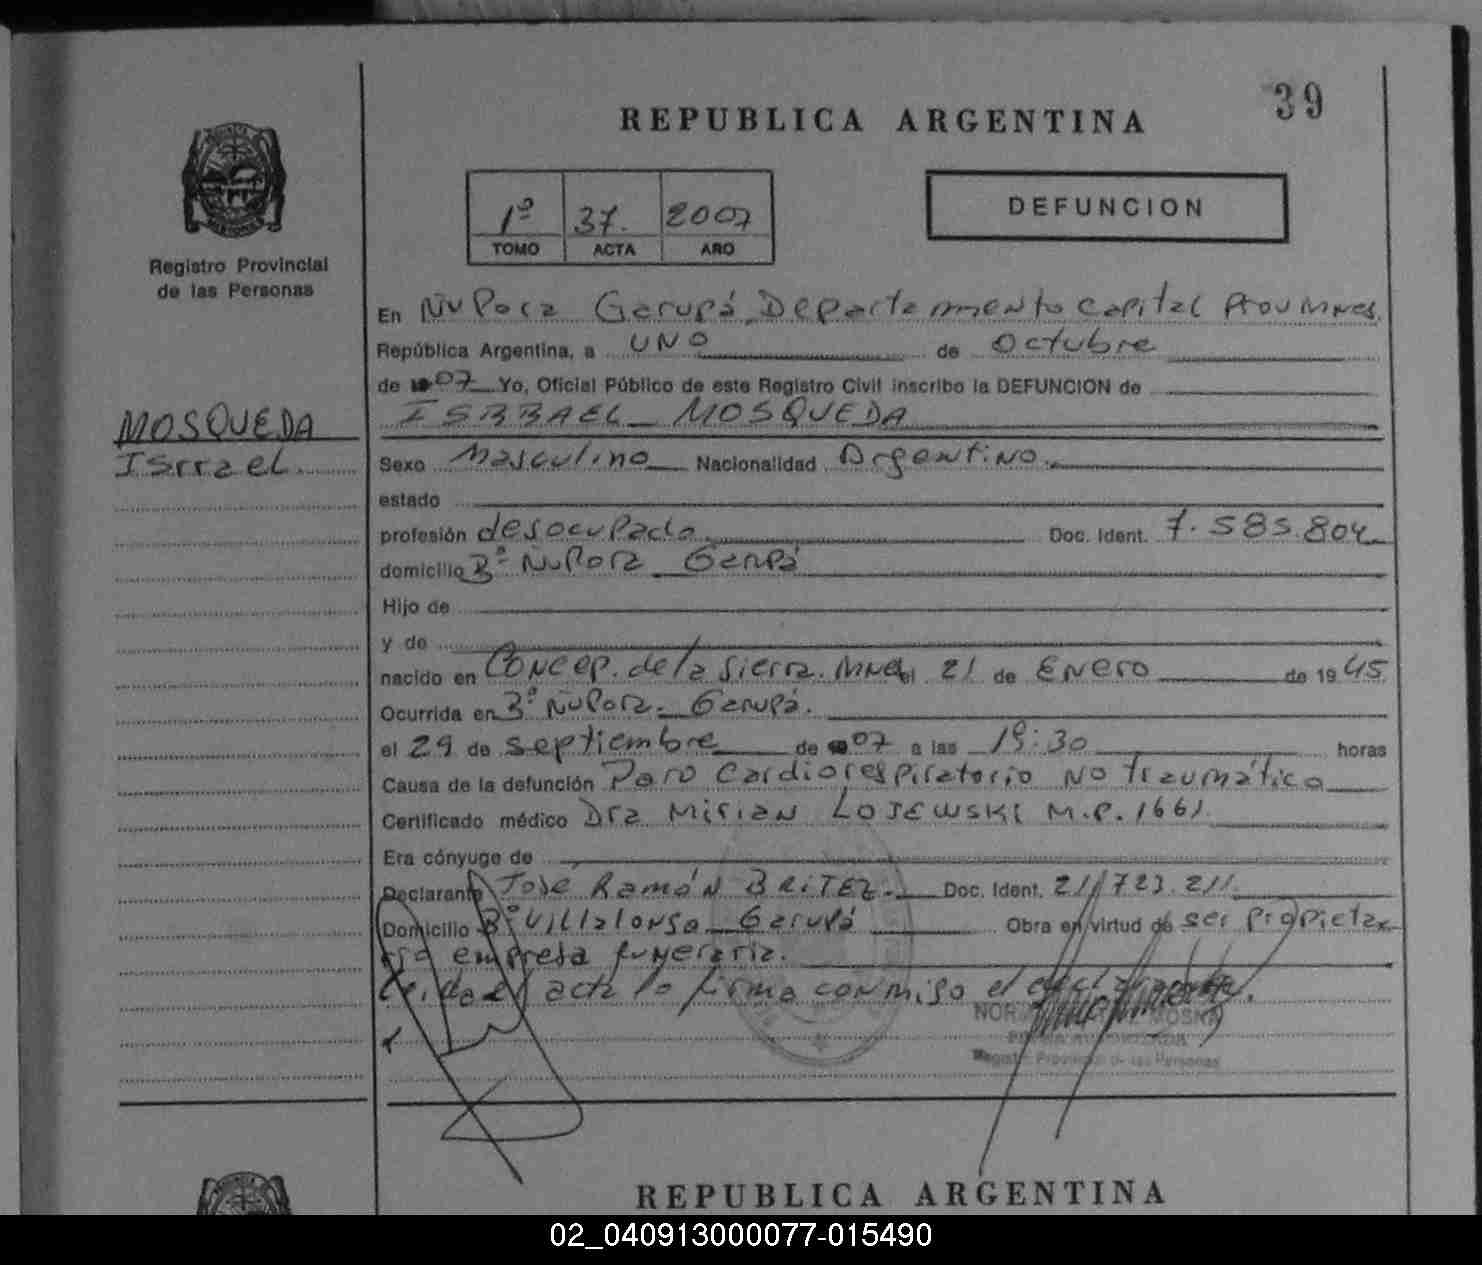 39
REPUBLICA ARGENTINA
1º 37. 2007
TOMO ACTA AÑO
DEFUNCION
Registro Provincial
de las Personas
En Ñu Pora Garupá Departamento Capital Prov Mnes.
República Argentina, a UNO de Octubre
de 07 Yo, Oficial Público de este Registro Civil inscribo la DEFUNCION de
ISRRAEL MOSQUEDA
MOSQUEDA
Isrrael
Sexo Masculino Nacionalidad Argentino
estado
profesión desocupado Doc. Ident. 7.585.804
domicilio Bº Ñu Pora Garupá
Hijo de
y de
nacido en Concep. de la Sierra. Mnes el 21 de Enero de 1945
Ocurrida en Bº Ñu Pora. Garupá.
el 29 de septiembre de 07 a las 19:30 horas
Causa de la defunción Paro Cardiorespiratorio No traumático
Certificado médico Dra Mirian LOJEWSKI M.P. 1661.
Era cónyuge de
Declarante José Ramón BRITEZ. Doc. Ident. 21.723.211
Domicilio Bº Villalonga Garupá Obra en virtud de ser propieta
rio empresa funeraria.
Leída el acta la firma conmigo el declarante.
Registro Provincial de las Personas
REPUBLICA ARGENTINA
02_040913000077-015490